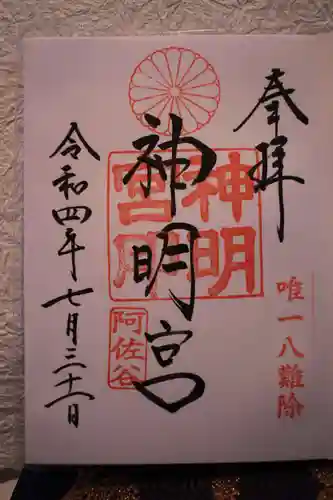 奉拝
唯一八難除
神明宮
神明
宮印
阿佐谷
令和四年七月三十一日